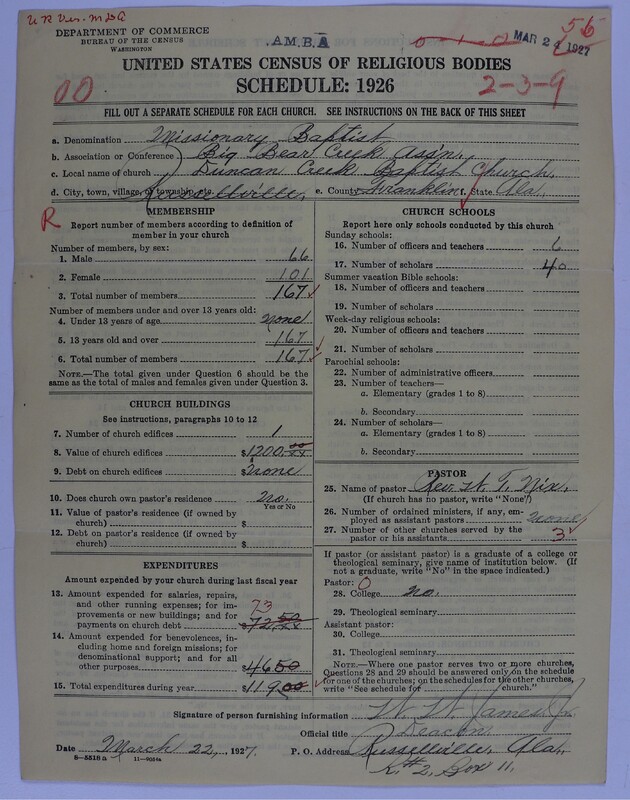 U R Ver. MDA
DEPARTMENT OF COMMERCE
BUREAU OF THE CENSUS
WASHINGTON
A.M.B.A
0-1-0
MAR 24 1927
56
UNITED STATES CENSUS OF RELIGIOUS BODIES
SCHEDULE: 1926
00
2-3-9
FILL OUT A SEPARATE SCHEDULE FOR EACH CHURCH. SEE INSTRUCTIONS ON THE BACK OF THIS SHEET
a. Denomination Missionary Baptist
b. Association or Conference Big Bear Creek Ass'n.
c. Local name of church Duncan Creek Baptist Church
d. City, town, village, or township, etc. Russellville, e. County Franklin f. State Ala.
R
MEMBERSHIP
Report number of members according to definition of
member in your church
Number of members, by sex:
1. Male 66
2. Female 101
3. Total number of members 167
Number of members under and over 13 years old:
4. Under 13 years of age none
5. 13 years old and over 167
6. Total number of members 167
NOTE.—The total given under Question 6 should be the
same as the total of males and females given under Question 3.
CHURCH BUILDINGS
See instructions, paragraphs 10 to 12
7. Number of church edifices 1
8. Value of church edifices $1200.00
9. Debt on church edifices $none
10. Does church own pastor's residence no.
Yes or No
11. Value of pastor's residence (if owned by
church) $
12. Debt on pastor's residence (if owned by
church) $
EXPENDITURES
Amount expended by your church during last fiscal year
13. Amount expended for salaries, repairs,
and other running expenses; for im-
provements or new buildings; and for
payments on church debt 73 $72.50
14. Amount expended for benevolences, in-
cluding home and foreign missions; for
denominational support; and for all
other purposes $46.50
15. Total expenditures during year $119.00
CHURCH SCHOOLS
Report here only schools conducted by this church
Sunday schools:
16. Number of officers and teachers 6
17. Number of scholars 40
Summer vacation Bible schools:
18. Number of officers and teachers
19. Number of scholars
Week-day religious schools:
20. Number of officers and teachers
21. Number of scholars
Parochial schools:
22. Number of administrative officers
23. Number of teachers—
a. Elementary (grades 1 to 8)
b. Secondary
24. Number of scholars—
a. Elementary (grades 1 to 8)
b. Secondary
PASTOR
25. Name of pastor Rev. W. T. Nix,
(If church has no pastor, write "None")
26. Number of ordained ministers, if any, em-
ployed as assistant pastors none
27. Number of other churches served by the
pastor or his assistants 3
If pastor (or assistant pastor) is a graduate of a college or
theological seminary, give name of institution below. (If
not a graduate, write "No" in the space indicated.)
Pastor: 0
28. College no.
29. Theological seminary
Assistant pastor:
30. College
31. Theological seminary
NOTE.—Where one pastor serves two or more churches,
Questions 28 and 29 should be answered only on the schedule
for one of the churches; on the schedules for the other churches,
write "See schedule for church."
Signature of person furnishing information W. W. James Jr.
Official title Deacon.
Date March 22, 1927. P. O. Address Russellville, Ala.
8-5518a 11-9054a
R.#2, Box 11.